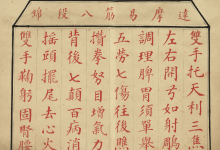 達摩易筋八段錦
雙手托天利三焦
左右開弓如射鵰
調理脾胃須單舉
五勞七傷往後瞧
攢拳怒目增氣力
背後七顛百病消
搖頭擺尾去心火
雙手鞠躬固腎腰